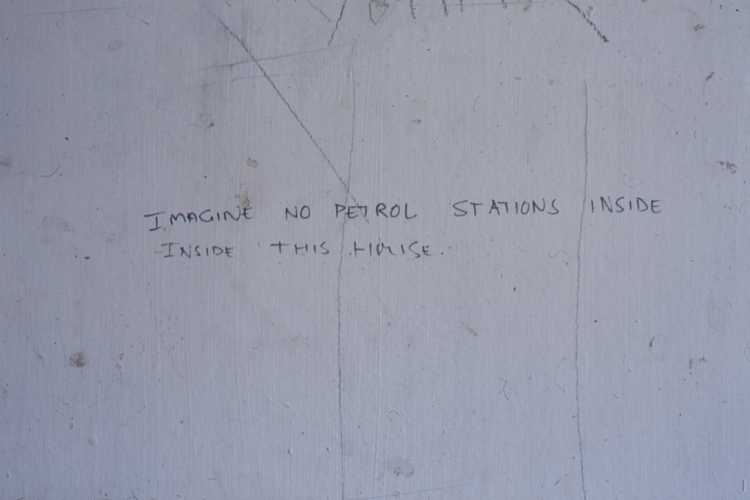 IMAGINE NO PETROL STATIONS INSIDE
INSIDE THIS HOUSE.